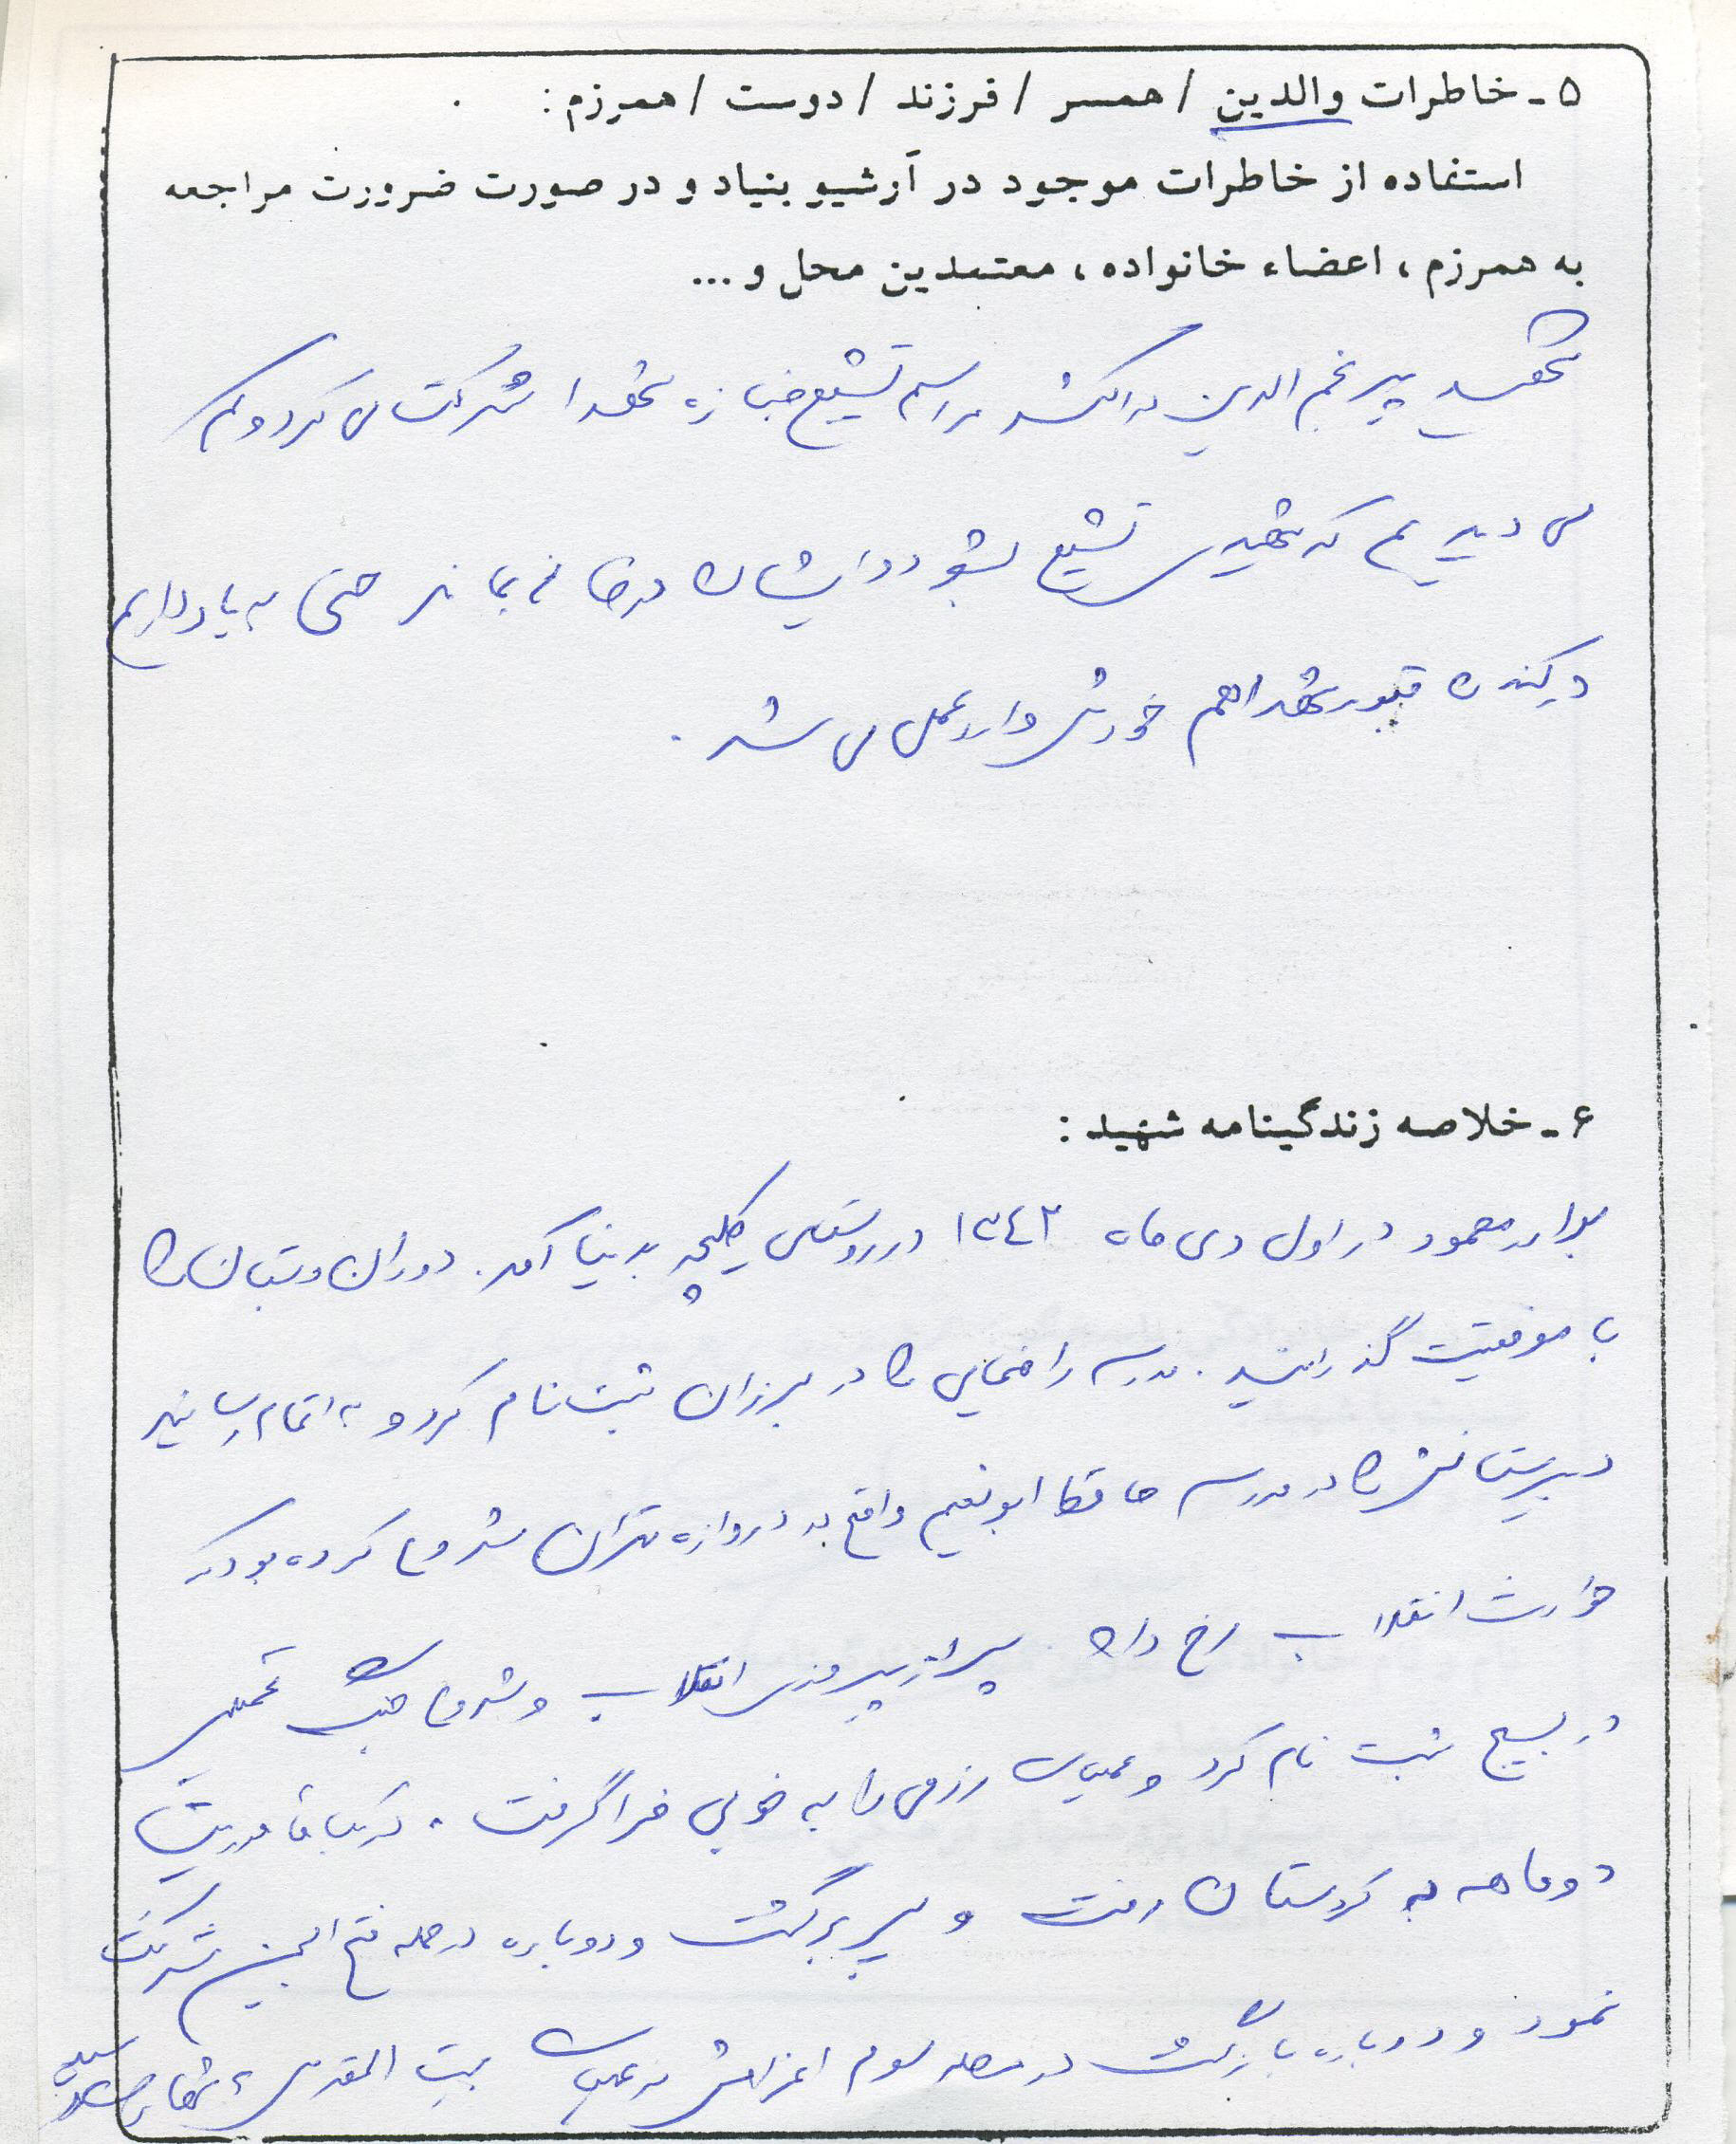 ۵ - خاطرات والدین / همسر / فرزند / دوست / همرزم :
استفاده از خاطرات موجود در آرشیو بنیاد و در صورت ضرورت مراجعه
به همرزم ، اعضاء خانواده ، معتمدین محل و ...
شهید پیرنجم الدین در اکثر مراسم تشییع جنازه شهدا شرکت می کرد و کم
می دیدیم که شهیدی تشییع بشود و ایشان در خانه بماند حتی به یاد داریم
در کندن قبور شهدا هم خودش وارد عمل می شد .
۶ - خلاصه زندگینامه شهید :
برادر محمود در اول دی ماه ۱۳۴۲ در روستای کلیچه بدنیا آمد . دوران دبستان را
با موفقیت گذرانید . مدرسه راهنمایی را در برزان ثبت نام کرد و به اتمام رسانید
دبیرستانش را در مدرسه حافظ ابونعیم واقع در دروازه تهران شروع کرده بود که
حوادث انقلاب رخ داد . پس از پیروزی انقلاب و شروع جنگ تحمیلی
در بسیج ثبت نام کرد و عملیات رزمی را به خوبی فرا گرفت . در یک ماموریت
دو ماهه به کردستان رفت و سپس برگشت و دوباره در حمله فتح المبین شرکت
نمود و دوباره بازگشت در مرحله سوم اعزامش در عملیات بیت المقدس به شهادت رسید